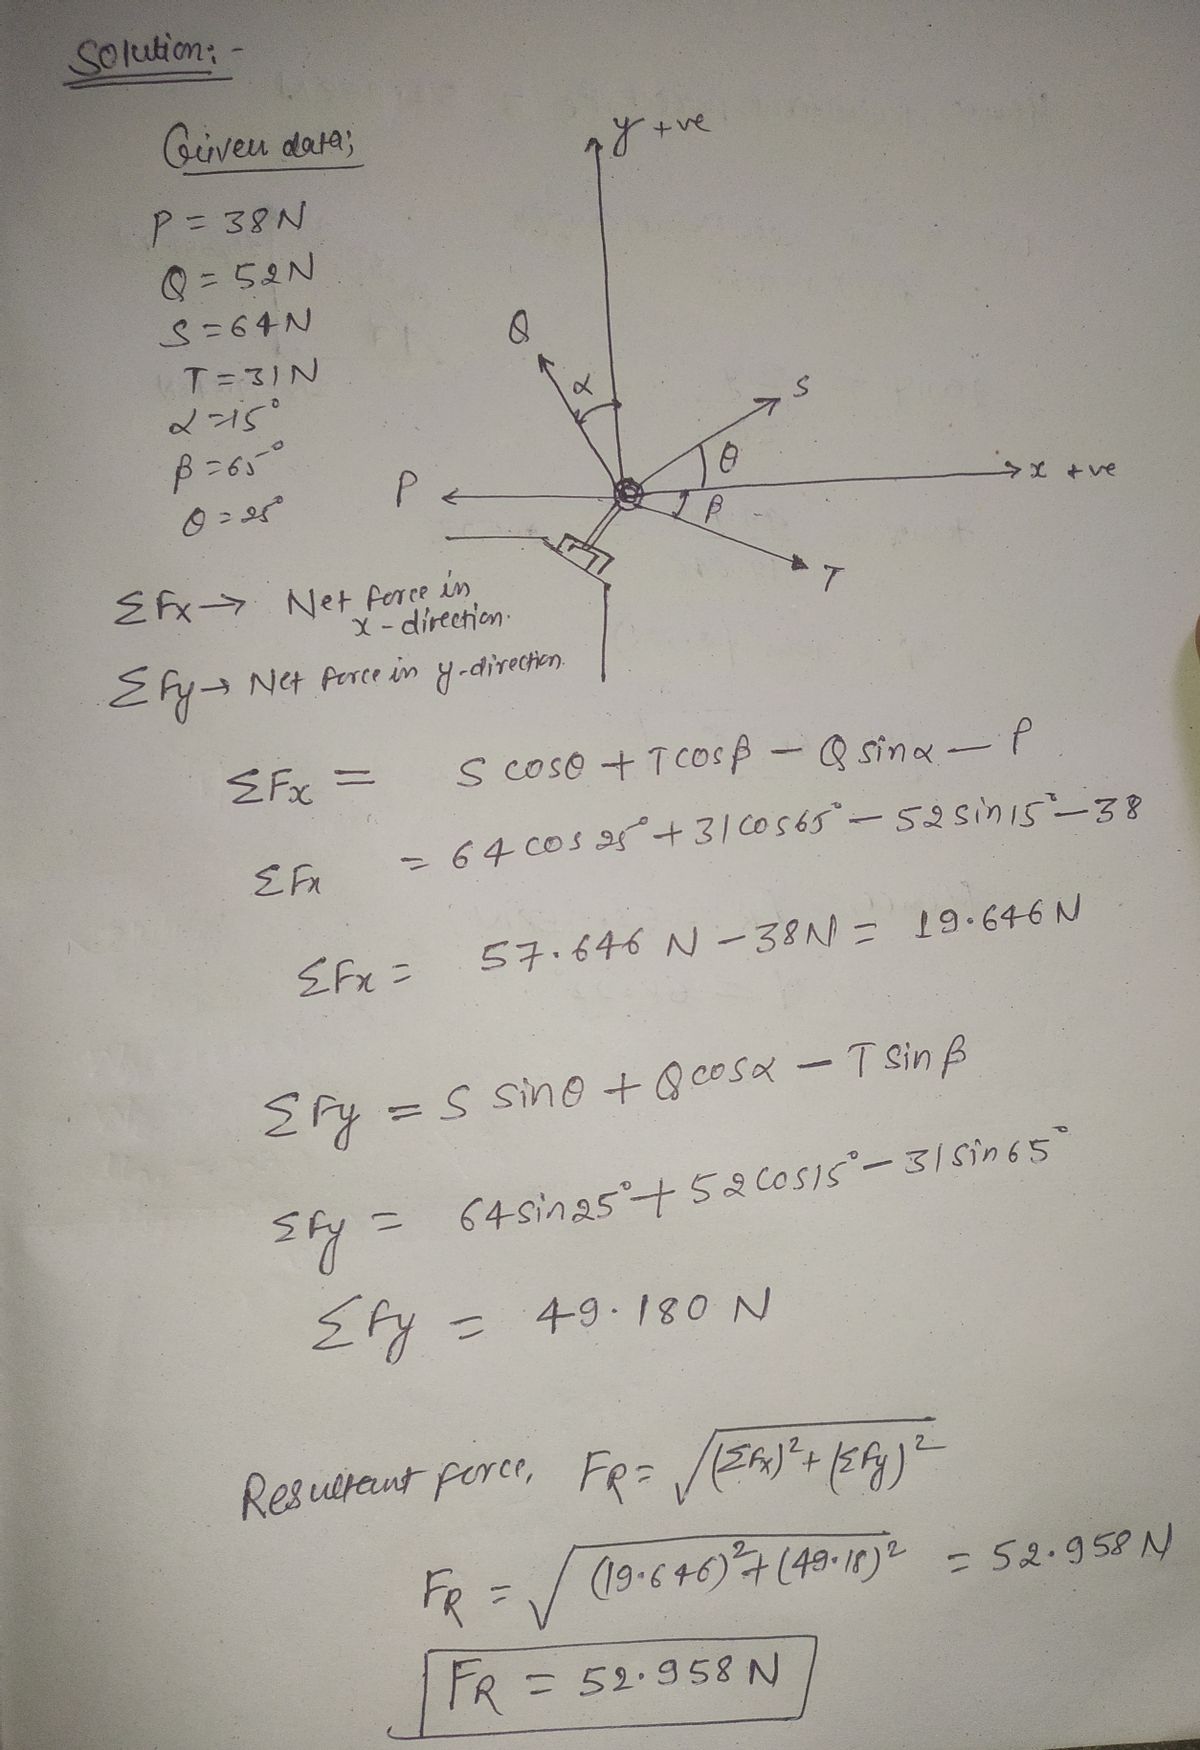 Solution: -
Given data;
P = 38N
Q = 52N
S = 64N
T = 31N
α = 15°
β = 65°
θ = 25°
y +ve
Q
α
S
θ
x +ve
P
β
T
ΣFx → Net force in
x-direction.
ΣFy → Net force in y-direction.
ΣFx = S cosθ + T cosβ - Q sinα - P
ΣFx = 64 cos 25° + 31 cos 65° - 52 sin 15° - 38
ΣFx = 57.646 N - 38N = 19.646 N
ΣFy = S sinθ + Q cosα - T sinβ
ΣFy = 64 sin 25° + 52 cos 15° - 31 sin 65°
ΣFy = 49.180 N
Resultant force, FR = √(ΣFx)² + (ΣFy)²
FR = √(19.646)² + (49.18)² = 52.958 N
FR = 52.958 N